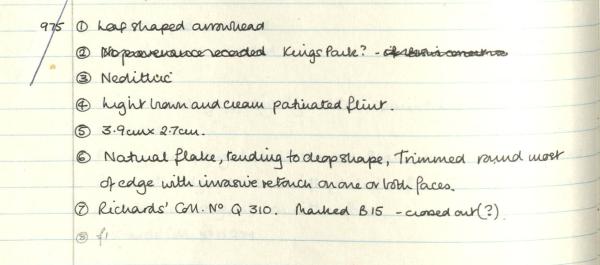 975 ① Leaf shaped arrowhead
② No provenance recorded Kings Park? -
③ Neolithic
④ Light brown and cream patinated flint.
⑤ 3.9cm x 2.7cm.
⑥ Natural flake, tending to drop shape, Trimmed round most
of edge with invasive retouch on one or both faces.
⑦ Richards' Coll. Nº Q 310. Marked B15 - crossed out(?)
⑧ f1